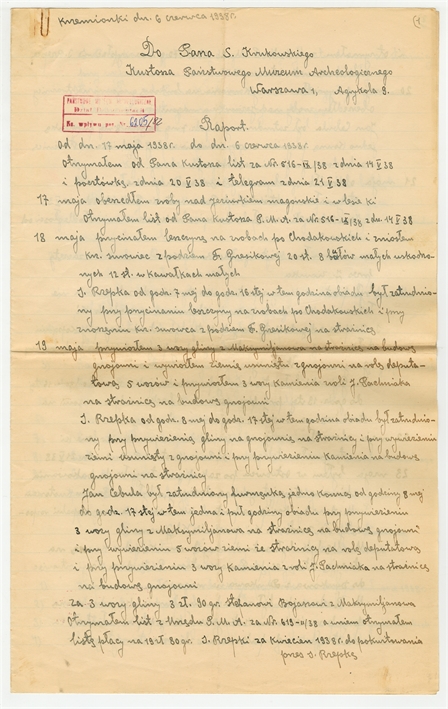 Krzemionki dn. 6 czerwca 1938r.
(1
Do Pana S. Krukowskiego
Kustosza Państwowego Muzeum Archeologicznego
Warszawa 1, Agrykola 9.
PAŃSTWOWE MUZEUM ARCHEOLOGICZNE
Nr. wpływu
Raport.
od dn. 17 maja 1938r. do dn. 6 czerwca 1938r.
Otrzymałem od Pana Kustosza list za Nr 516-IX/38 z dnia 14 V 38
i pocztówkę z dnia 20 V 38 i telegram z dnia 21 V 38
17 maja obszedłem zroby nad jeziurkiem magońskie i w lesie
Otrzymałem list od Pana Kustosza P.M.A. za Nr 516-IX/38 z dn. 14 V 38
18 maja przycinałem leszczynę na zrobach po Chodakowskich i zniosłem
krz. surowiec z pod ziem Fr. Gresikowej 20 szt. 8 małych uszkodzo-
nych 12 st. w kawałkach małych
J. Rzepka od godz. 7 mej do godz. 16 stej w tem godzina obiadu był zatrudnio-
ny przy przycinaniu leszczyny na zrobach po Chodakowskich i przy
znoszeniu krz. surowca z pod ziem Fr. Gresikowej na strażnicę
19 maja przywiozłem 3 wozy gliny z Maksymiljanowa na strażnicę na budowę
gnojowni i wywiozłem ziemię z gnojowni na rolę deputa-
tową 5 wozów i przywiozłem 3 wozy kamienia z roli J. Pachniaka
na strażnicę na budowę gnojowni
J. Rzepka od godz. 8 mej do godz. 17 stej w tem godzina obiadu był zatrudnio-
ny przy przywiezieniu gliny na gnojownię na strażnicy i przy wywiezieniu
ziemi z gnojowni i przy przywiezieniu kamienia na budowę
gnojowni na strażnicy
Jan Cebula był zatrudniony furmanką jedno konną od godziny 8 mej
do godz. 17 stej w tem jedna i puł godziny obiadu przy przywiezieniu
3 wozy gliny z Maksymiljanowa na strażnicę na budowę gnojowni
i przy wywiezieniu 5 wozów ziemi ze strażnicy na rolę deputatową
i przy przywiezieniu 3 wozy kamienia z roli J. Pachniaka na strażnicę
na budowę gnojowni
za 3 wozy gliny 3 zł. 90 gr. Bojanowi z Maksymiljanowa
Otrzymałem list z Urzędu P.M.A. za Nr 619-II/38 a w niem otrzymałem
listę płacy na 18 zł 80 gr. J. Rzepki za kwiecień 1938r. do pokwitowania
przez J. Rzepkę